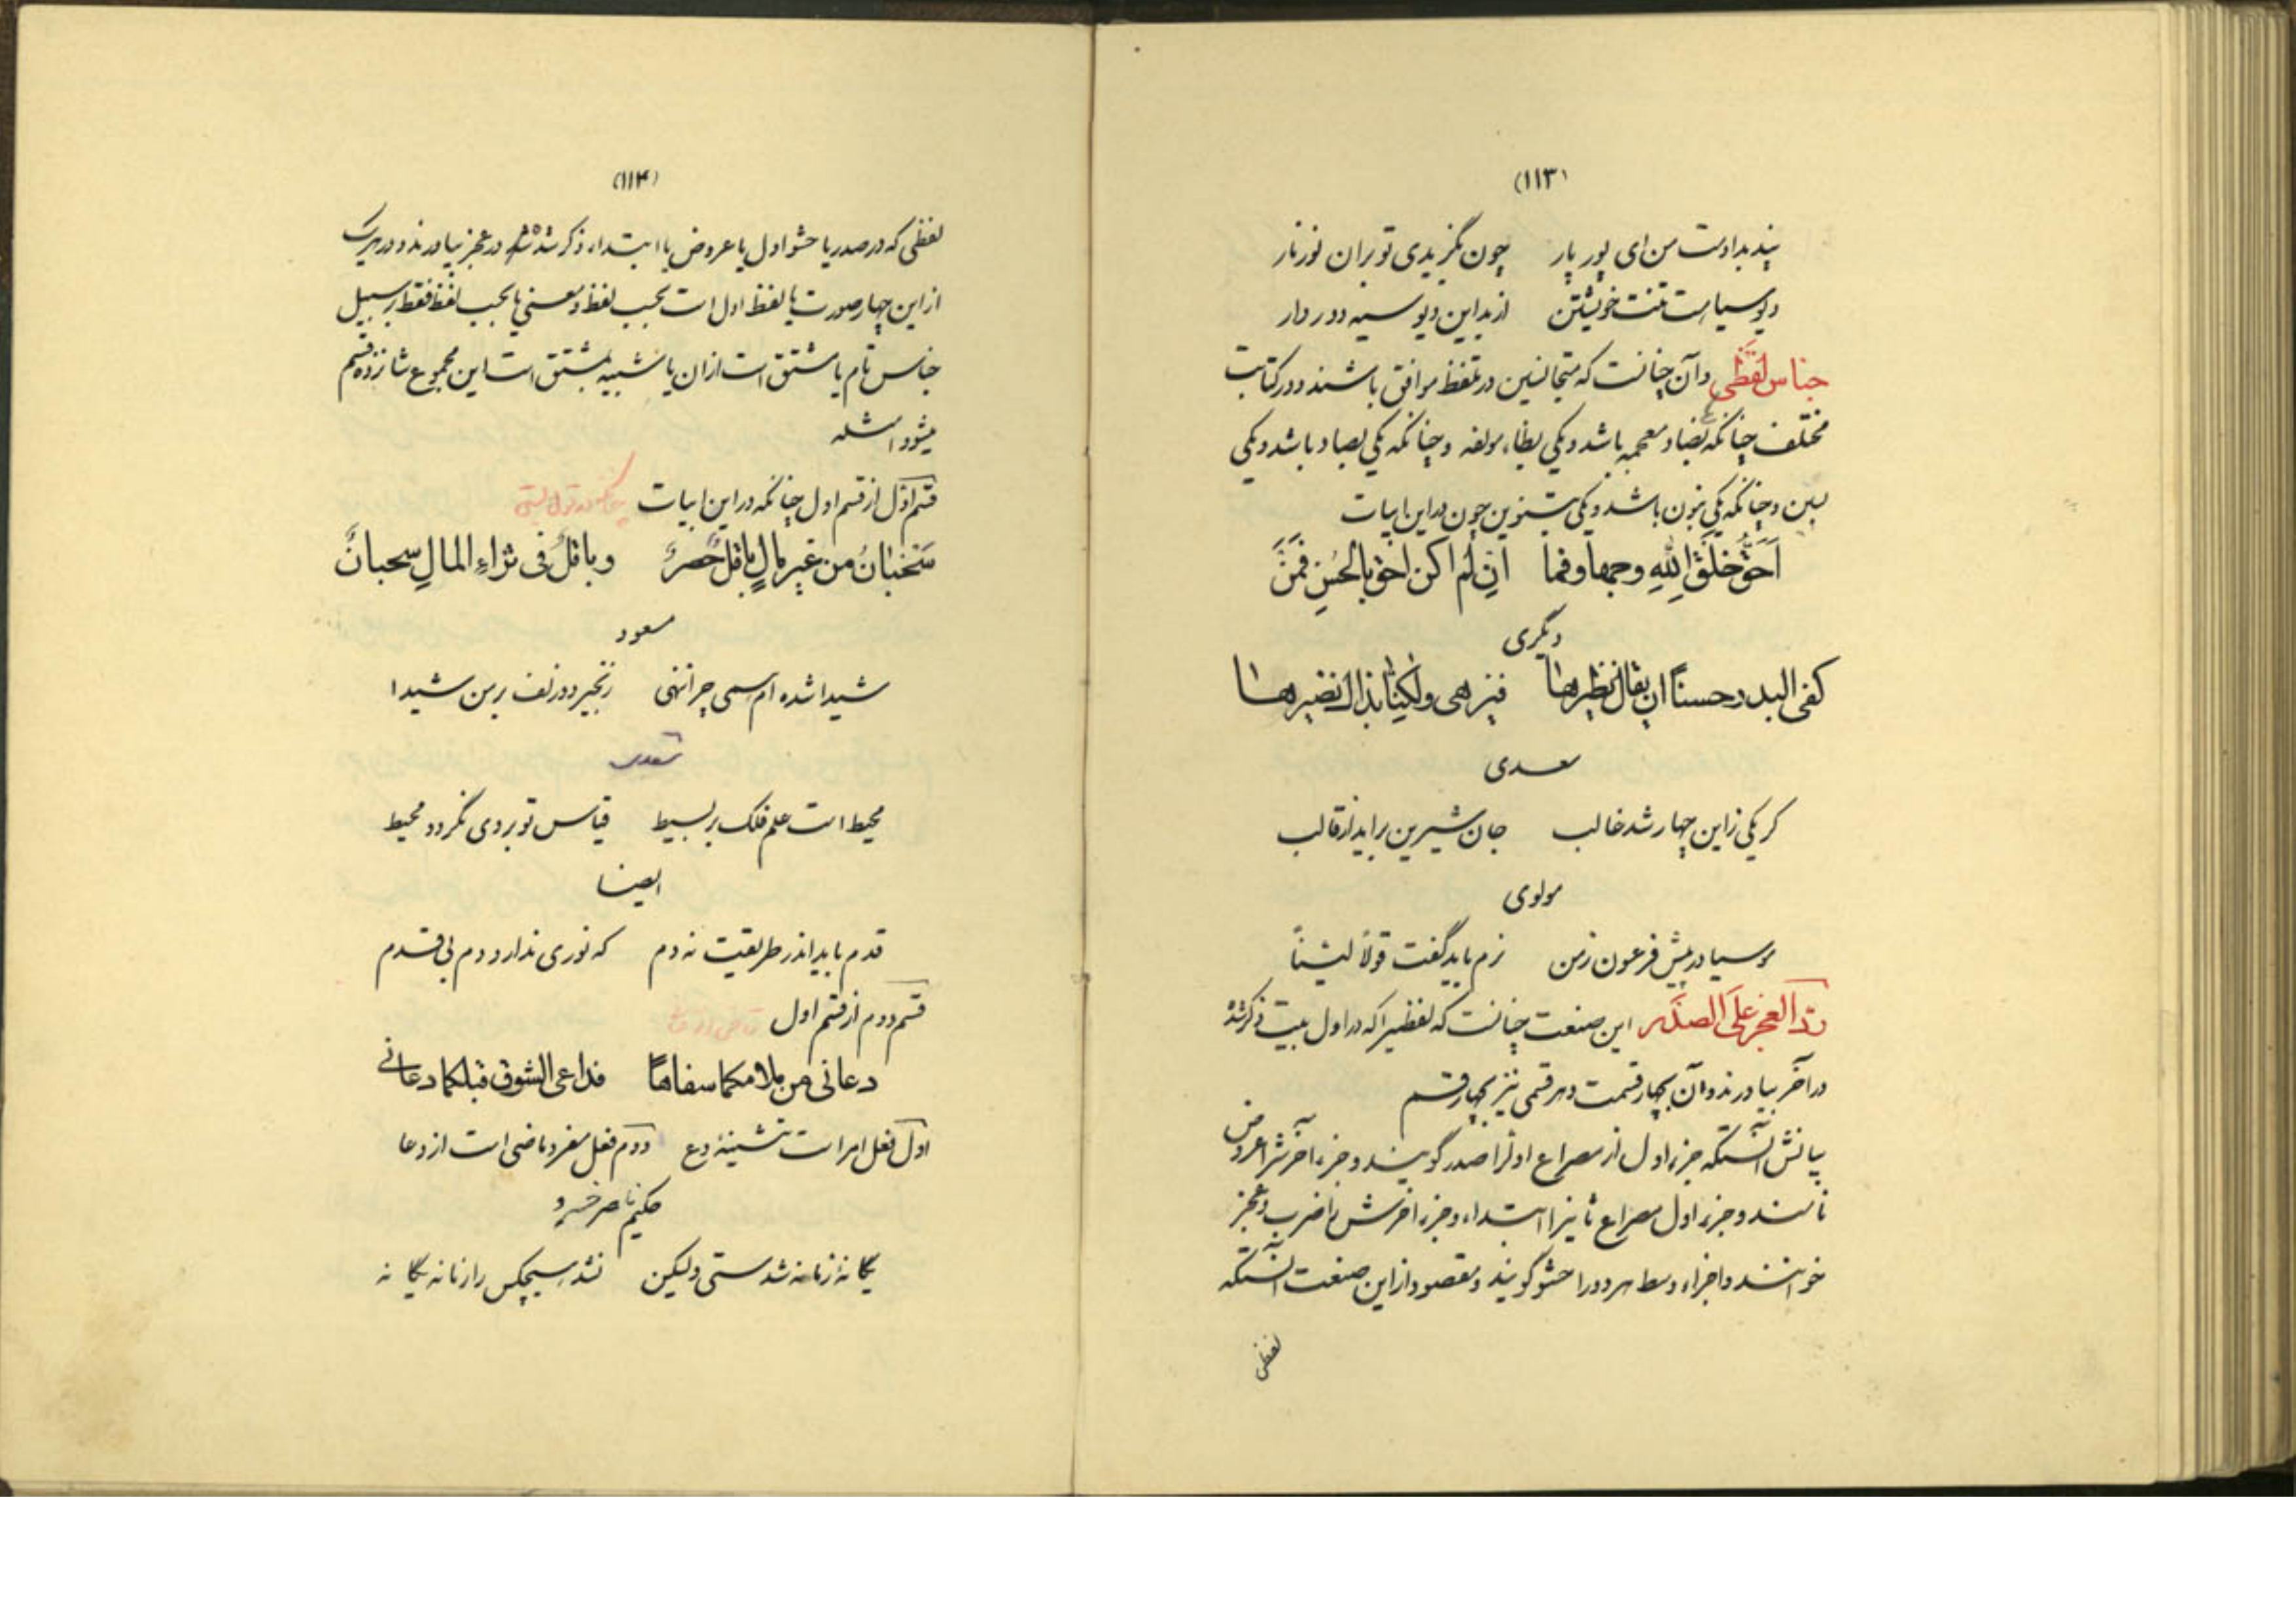 (۱۱۳)
پند بداوت من ای پور پار چون نگزیدی تو بران نور نار
دیو سیاست تنت خویشتن از بد این دیو سیه دور دار
جناس لفظی و آن چنانست که متجانسین در تلفظ موافق باشند و در کتابت
مختلف چنانکه بضاد معجمه باشد و یکی بظاء مولفه و چنانکه یکی بصاد باشد و یکی
بسین و چنانکه یکی بنون باشد و یکی بتنوین چون در این ابیات
اَحَقُّ خَلْقِ اللهِ وجهاً و فما اِن لم اکن احق بالحُسنِ فَمَنْ
دیگری
کفی البدر حسناً ان یقال نظیرها فیزهی ولکنّا بذاک نضیرها
سعدی
کر یکی زاین چهار شد غالب جان شیرین براید از قالب
مولوی
موسیا در پیش فرعون زمن نرم باید گفت قولاً لیّناً
ردّ العجز علی الصّدر این صنعت چنانست که لفظیرا که در اول بیت ذکر شده
در آخر بیاورند و آن بچهار قسمت و هر قسمی نیز بچهار قسم
بیانش آنستکه جزء اول از مصراع اولرا صدر گویند و جزء آخرشرا عروض
نامند و جزء اول مصراع ثانیرا ابتداء و جزء اخرش را ضرب و عجز
خوانند و اجزاء وسط هر دو را حشو گویند و مقصود از این صنعت آنستکه
لفظی
(۱۱۴)
لفظی که در صدر یا حشو اول یا عروض یا ابتداء ذکر شده در عجز بیاورند و در هر یک
از این چهار صورت یا لفظ اول است بحسب لفظ و معنی یا بحسب لفظ فقط بر سبیل
جناس تام یا مشتق است از ان یا شبیه بمشتق است این مجموع شانزده قسم
میشود امثله
قسم اوّل از قسم اول چنانکه در این ابیات
سَحْبانُ من غیر مالٍ باقلٌ حَصِرٌ و باقلٌ فی ثراءِ المالِ سحبانٌ
مسعود
شیدا شده ام سمی چرا ننهی زنجیر دو زلف بر من شیدا
سعدی
محیط است علم فلک بر بسیط قیاس تو بر وی نگردد محیط
ایضا
قدم باید اندر طریقت نه دم که نوری ندارد دم بی قدم
قسم دوم از قسم اول
دعانی من ملامکما سفاهاً فداعی الشوق قبلکما دعانی
اول فعل امر است تثنیهٔ دع دوم فعل مفرد ماضی است از دعا
حکیم ناصر خسرو
یگانهٔ زمانه شدستی ولیکن نشد هیچکس را زمانه یگانه